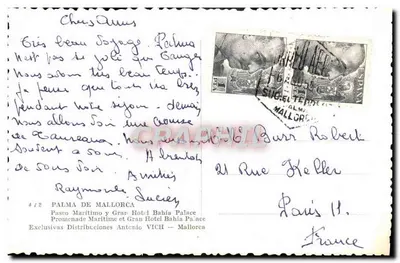 Chers Amis
Très beau voyage. Palma
n'est pas si joli que Tanger
nous avons très beau temps.
Je pense que tout ira très
pendant notre séjour. demain
nous allons voir une course
de Taureaux. Nous
soir. A bientôt
de vous voir. Amitiés
Raymonde Lucien
Mr Burr Robert
21 Rue Keller
Paris 11.
France
MALLORCA
4/2 PALMA DE MALLORCA
Paseo Marítimo y Gran Hotel Bahía Palace
Promenade Maritime et Grand Hotel Bahía Palace
Exclusivas Distribuciones Antonio VICH — Mallorca